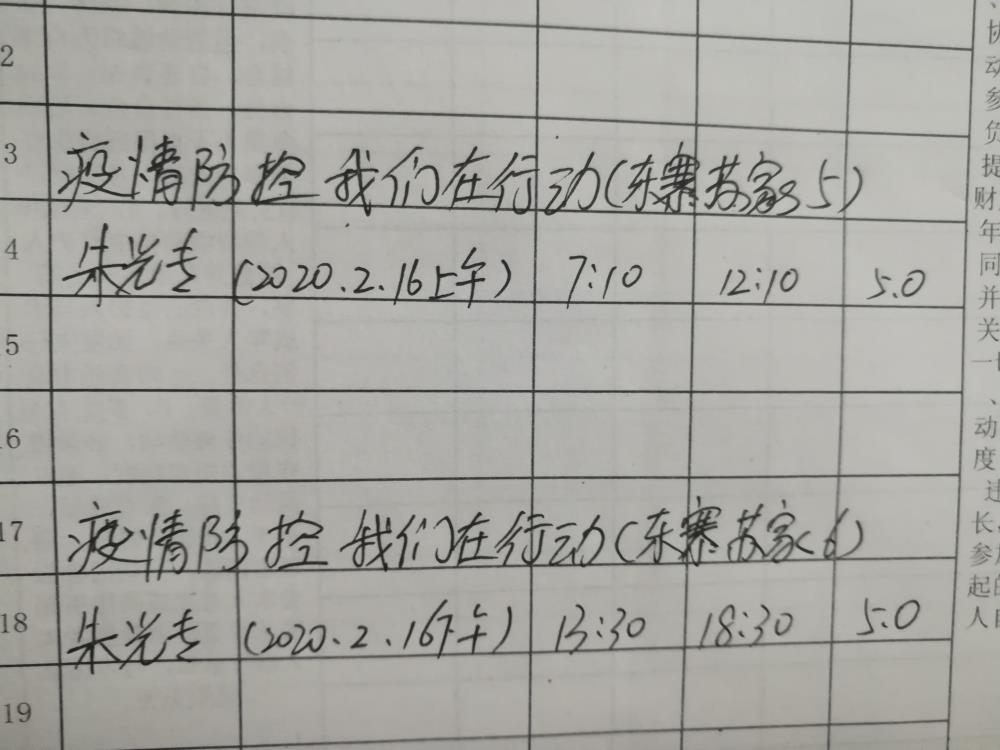 2
3 疫情防控 我们在行动(东寨苏家5)
4 朱光专 (2020.2.16上午) 7:10 12:10 5.0
15
16
17 疫情防控 我们在行动(东寨苏家6)
18 朱光专 (2020.2.16下午) 13:30 18:30 5.0
19
、
协
动
参
负
提
财
年
同
并
关
一
、
动
度
违
长
参
起的
人